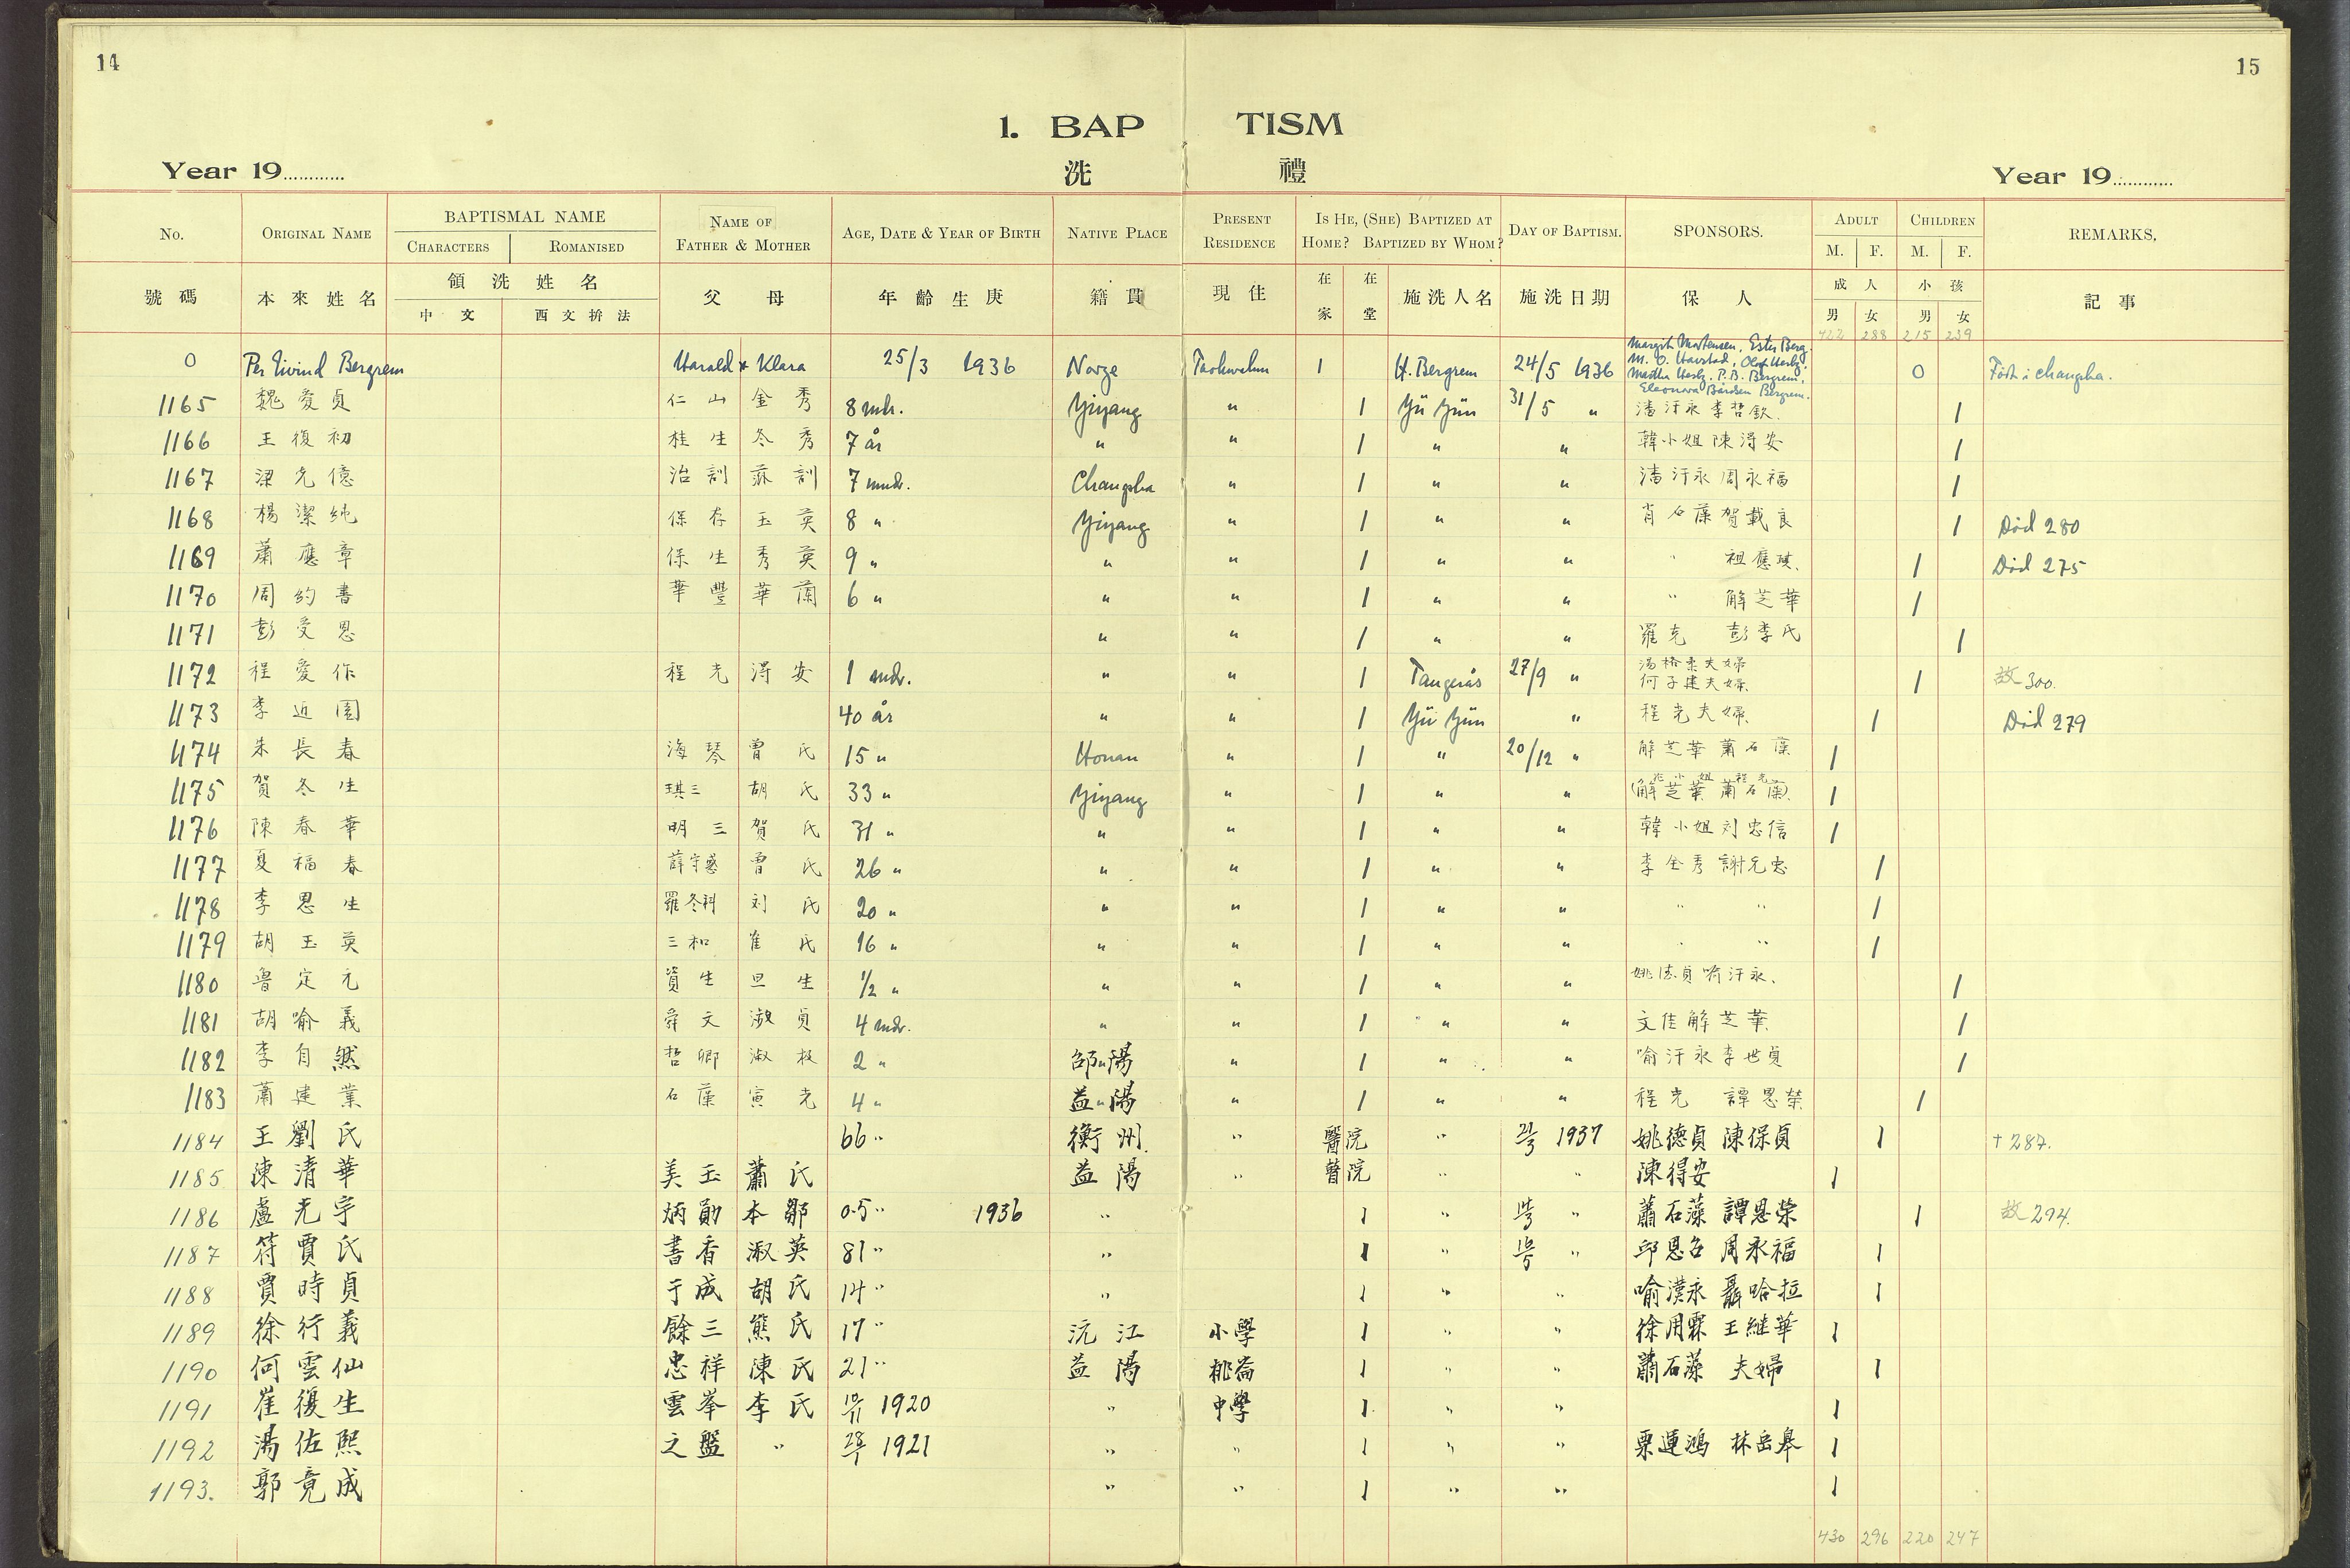 14
15
1. BAP TISM
洗 禮
Year 19............ Year 19............
No. ORIGINAL NAME BAPTISMAL NAME CHARACTERS ROMANISED NAME OF FATHER & MOTHER AGE, DATE & YEAR OF BIRTH NATIVE PLACE PRESENT RESIDENCE IS HE, (SHE) BAPTIZED AT HOME? BAPTIZED BY WHOM? DAY OF BAPTISM. SPONSORS. ADULT M. F. CHILDREN M. F. REMARKS.
號碼 本來姓名 領洗姓名 中文 西文拚法 父 母 年齡生庚 籍貫 現住 在家 在堂 施洗人名 施洗日期 保人 成人 男 女 小孩 男 女 記事
422 288 215 239
0 Per Eivind Bergrem Harald & Klara 25/3 1936 Norge Taohwalun 1 H. Bergrem 24/5 1936 Margit Mortensen, Ester Berg. M. O. Havstad, Olof Hesby, Martha Hesby, P. B. Bergrem, Eleonora Bårdsen Bergrem. 0 Född i Changsha.
1165 魏愛貞 仁山 金秀 8 mdr. Yiyang " 1 Yü Yün 31/5 " 潘汗永 李哲欽 1
1166 王復初 桂生 冬秀 7 år " " 1 " " 韓小姐 陳得安 1
1167 梁光億 治訓 蓀訓 7 mndr. Changsha " 1 " " 潘汗永 周永福 1
1168 楊潔純 保存 玉英 8 " Yiyang " 1 " " 肖石藻 賀載良 1 Död 280
1169 蕭應章 保生 秀英 9 " " " 1 " " " 祖應琪 1 Död 275
1170 周約書 華豐 華蘭 6 " " " 1 " " " 解芝華 1
1171 彭受恩 " " 1 " " 羅克 彭李氏 1
1172 程愛作 程光 得安 1 mdr. " " 1 Tangerås 27/9 " 湯橋柔夫婦 何子建夫婦 1 故 300.
1173 李近園 40 år " " 1 Yü Yün " 程光夫婦 1 Död 279
1174 朱長春 海琴 曾氏 15 " Honan " 1 " 20/12 " 解芝華 蕭石藻 1
1175 賀冬生 琪三 胡氏 33 " Yiyang " 1 " " (解芝華 蕭石藻) 1
1176 陳春華 明三 賀氏 31 " " " 1 " " 韓小姐 刘忠信 1
1177 夏福春 薛守惑 曾氏 26 " " " 1 " " 李全秀 謝先忠 1
1178 李恩生 羅冬科 刘氏 20 " " " 1 " " " " 1
1179 胡玉英 三和 崔氏 16 " " " 1 " " " " 1
1180 魯定元 資生 旦生 1/2 " " " 1 " " 姚德貞 喻汗永 1
1181 胡喻義 舜文 淑貞 4 mdr. " " 1 " " 文佳 解芝華 1
1182 李自然 哲卿 淑枝 2 " 邵陽 " 1 " " 喻汗永 李世貞 1
1183 蕭建業 石藻 寅光 4 " 益陽 " 1 " " 程光 譚恩榮 1
1184 王劉氏 66 " 衡州 " 醫院 " 21/3 1937 姚德貞 陳保貞 1 † 287.
1185 陳清華 美玉 蕭氏 益陽 " 醫院 " " 陳得安 1
1186 盧光宇 炳勛 本鄒 0.5 " 1936 " 1 " " 蕭石藻 譚恩榮 1 故 294.
1187 符賈氏 書香 淑英 81 " " 1 " " 邱恩召 周永福 1
1188 賈時貞 于成 胡氏 14 " " 1 " " 喻漢永 聶哈拉 1
1189 徐行義 餘三 熊氏 17 " 沅江 小學 1 " " 徐用霖 王継華 1
1190 何雲仙 忠祥 陳氏 21 " 益陽 桃崙 1 " " 蕭石藻 夫婦 1
1191 崔復生 雲峯 李氏 10/11 1920 " 中學 1 " " 1
1192 湯佐熙 之盤 " 28/1 1921 " " 1 " " 栗運鴻 林岳皋 1
1193. 郭竟成 " " 1 " " 1
430 296 220 247